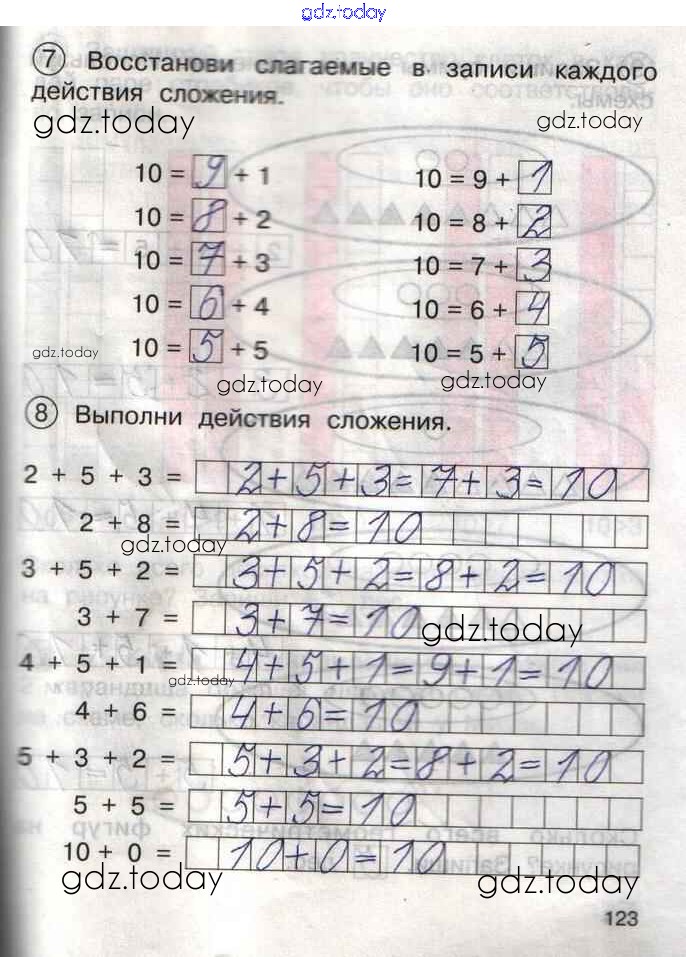 gdz.today
7 Восстанови слагаемые в записи каждого
действия сложения.
gdz.today gdz.today
10 = 9 + 1 10 = 9 + 1
10 = 8 + 2 10 = 8 + 2
10 = 7 + 3 10 = 7 + 3
10 = 6 + 4 10 = 6 + 4
10 = 5 + 5 10 = 5 + 5
gdz.today gdz.today gdz.today
8 Выполни действия сложения.
2 + 5 + 3 = 2+5+3=7+3=10
2 + 8 = 2+8=10
gdz.today
3 + 5 + 2 = 3+5+2=8+2=10
3 + 7 = 3+7=10 gdz.today
4 + 5 + 1 = 4+5+1=9+1=10
gdz.today
4 + 6 = 4+6=10
5 + 3 + 2 = 5+3+2=8+2=10
5 + 5 = 5+5=10
10 + 0 = 10+0=10
gdz.today gdz.today
123